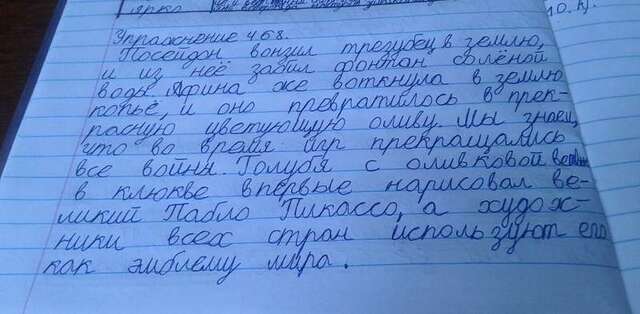 ярко
10. К).
Упражнение 468.
Посейдон вонзил трезубец в землю,
и из неё забил фонтан солёной
воды. Афина же воткнула в землю
копьё, и оно превратилось в прек-
расную цветующую оливу. Мы знаем,
что во время игр прекращались
все войны. Голубя с оливковой ветвью
в клюкве впервые нарисовал ве-
ликий Пабло Пикассо, а худож-
ники всех стран используют его
как эмблему мира.